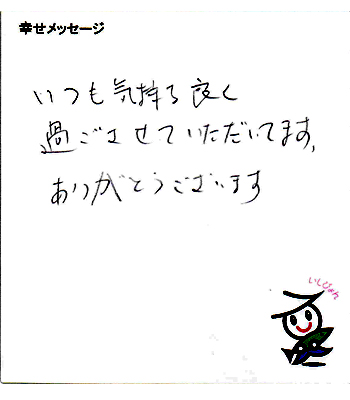 幸せメッセージ
いつも気持ち良く
過ごさせていただいてます,
ありがとうございます